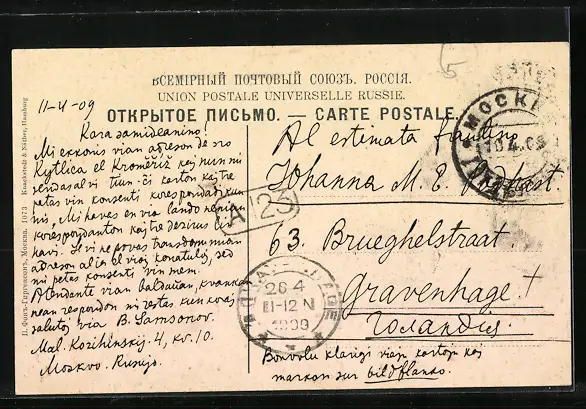 ВСЕМІРНЫЙ ПОЧТОВЫЙ СОЮЗЪ. РОССІЯ.
UNION POSTALE UNIVERSELLE RUSSIE.
ОТКРЫТОЕ ПИСЬМО. — CARTE POSTALE.
11-4-09
Kara samideanino!
Mi ekkonis vian adreson de sro
Kytlica el Kroměříž kaj nun mi
sendas al vi tiun-ĉi karton kaj tre
petas vin konsenti korespondadi kun
mi. Mi havas en via lando nenian
korespondanton kaj tre deziras
havi. Se vi ne povas transdonu mian
adreson al ies el viaj konatuloj, sed
mi petas konsenti vin mem.
Atendante vian baldaŭan, kvankam
nean respondon mi restas kun koraj
salutoj via B. Samsonov.
Mal. Kozihinskij. 4, kv. 10.
Moskvo. Rusujo.
Al estimata fraŭlino
Johanna M. E.
63. Brueghelstraat.
Gravenhage!
Голандія.
Bonvolu klarigi viajn kartojn kaj
markon sur bildflanko.
МОСКВА
10.4.09
A 123
26 4
11-12 N
1909
П. Фонъ-Гиргенсонъ, Москва. 1073 Knackstedt & Näther, Hamburg
5